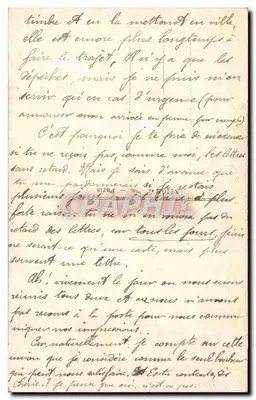 timbre et en la mettant en ville,
elle est encore plus longtemps à
faire le trajet, Il n'y a que les
dépêches, mais je ne puis m'en
servir qu'en cas d'urgence (pour
annoncer mon arrivée en perme par exemple)
C'est pourquoi je te prie de m'excuser
si tu ne reçois pas, comme moi, les lettres
sans retard. Mais je sais d'avance que
tu me pardonneras si je restais
plusieurs à plus
forte raison tu ne m'en voudras pas du
retard des lettres, car tous les jours, j'écris
ne serait-ce qu'une carte, mais plus
souvent une lettre.
Ah! vivement le jour où nous serons
réunis tous deux et où nous n'aurons
pas recours à la poste pour nous commu
niquer nos impressions.
Car, naturellement, je compte sur cette
union que je considère comme le seul bonheur
qui peut nous satisfaire. Es-tu contente, dis
Chérie? Je pense que oui, n'est-ce pas.
CPAPHIL